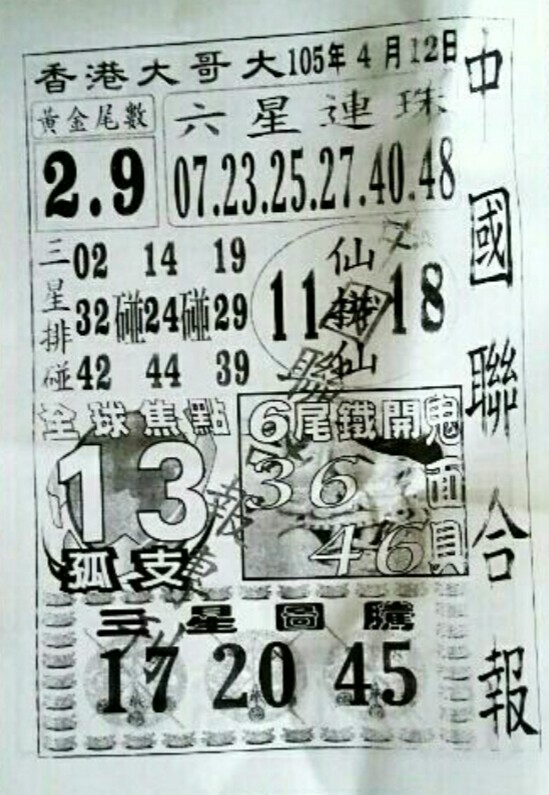 香港大哥大105年4月12日
黃金尾數
2.9
六星連珠
07.23.25.27.40.48
三星排碰
02 14 19
32碰24碰29
42 44 39
仙 仙
11 18
全球焦點
13
孤支
6尾鐵開
36
46
鬼面
三星圖騰
17 20 45
中國聯合報